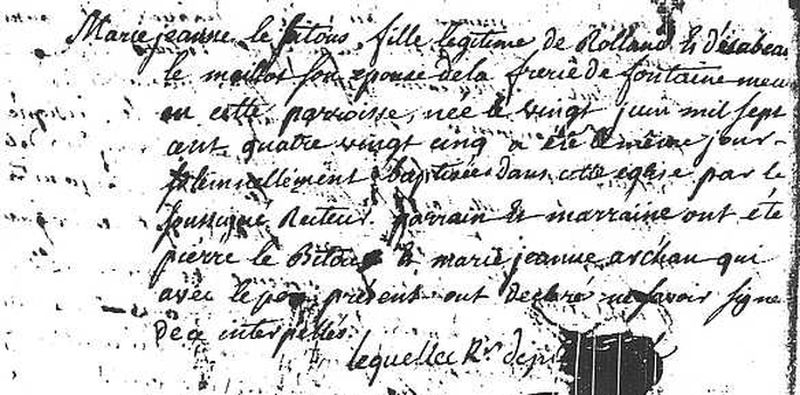 Marie jeanne le bitous fille legitime de Rolland & d'esabeau
le maillot son epouse de la frerie de fontaine meur
en cette parroisse, née le vingt juin mil sept
cent quatre vingt cinq a été le même jour
solemnellement baptisée dans cette eglise par le
soussigné Recteur. parrain & marraine ont été
pierre le Bitous & marie jeanne archan qui
avec le pere présent ont declaré ne savoir signe
De ce interpellés
lequellec Rr